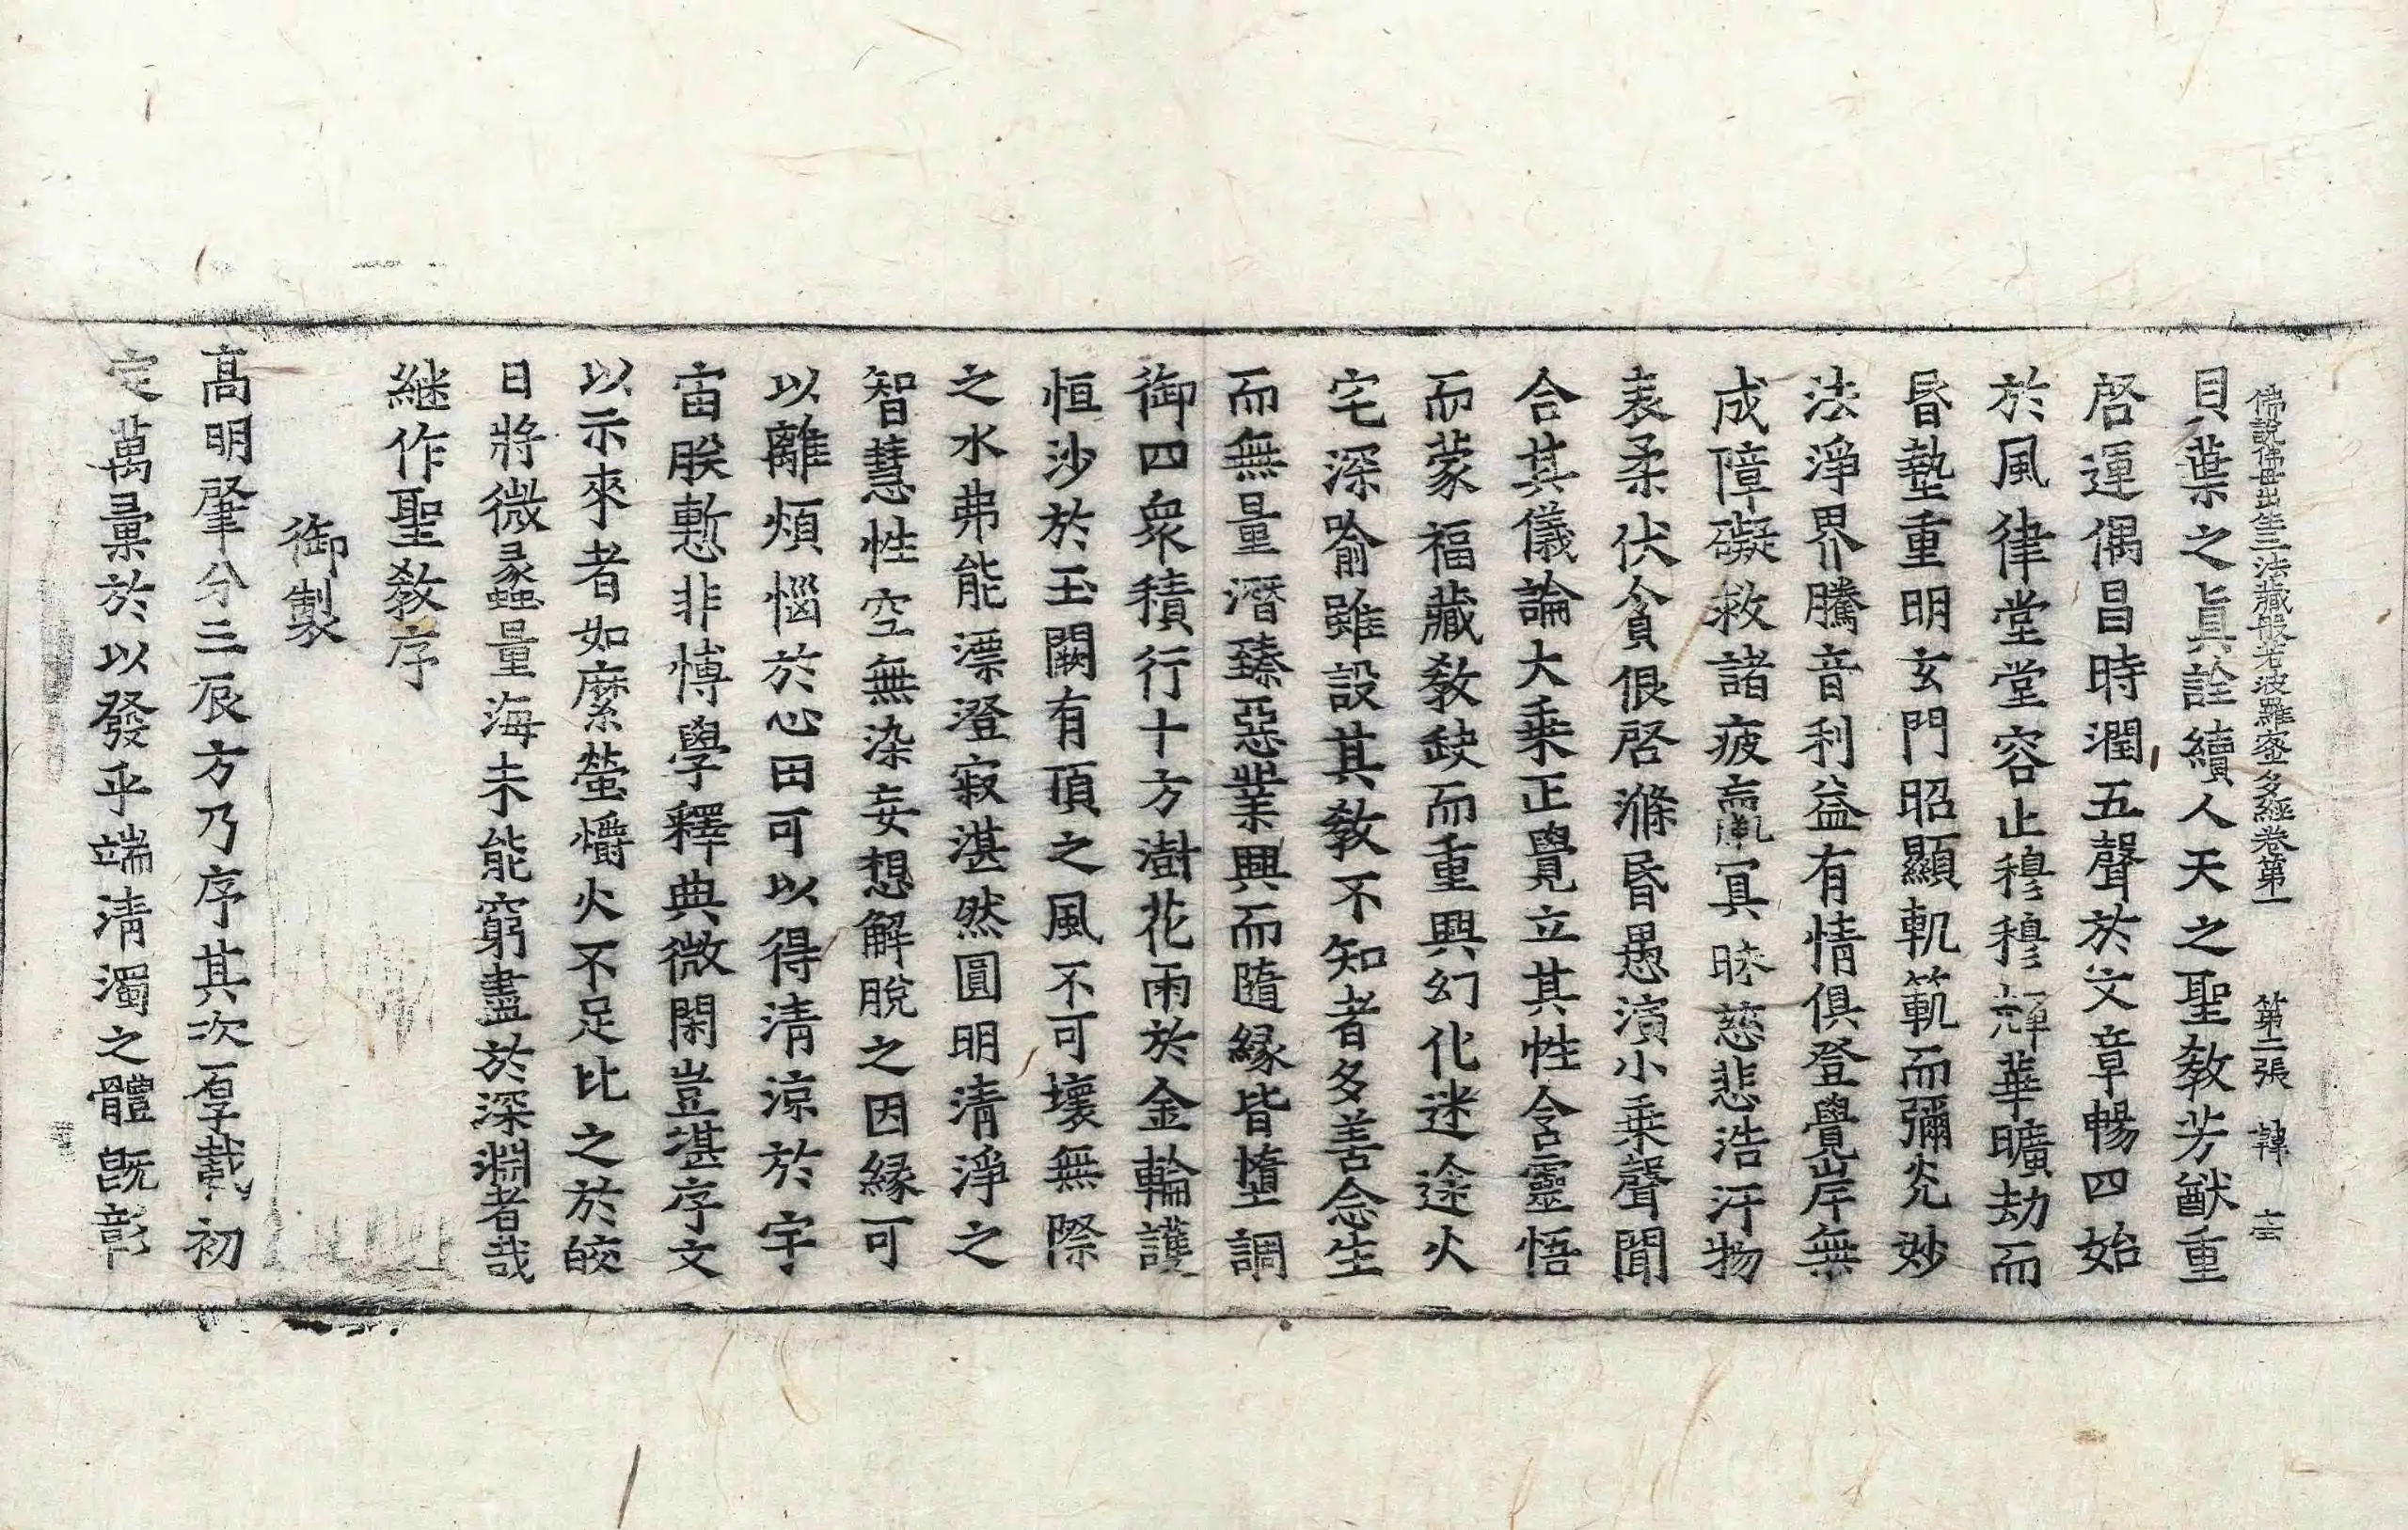 佛說佛母出生三法藏般若波羅蜜多經卷第一 第二張 韓
貝葉之眞詮續人天之聖教芳猷重
啓運偶昌時潤五聲於文章暢四始
於風律堂堂容止穆穆輝華曠劫而
昏墊重明玄門昭顯軌範而彌光妙
法淨界騰音利益有情俱登覺岸無
成障礙救諸疲羸冥昧慈悲浩汗物
表柔伏貪佷啓滌昏愚演小乘聲聞
合其儀論大乘正覺立其性含靈悟
而蒙福藏教缺而重興幻化迷途火
宅深喻雖設其教不知者多善念生
而無量潛臻惡業興而隨緣皆墮調
御四衆積行十方澍花雨於金輪護
恒沙於玉闕有頂之風不可壞無際
之水弗能漂澄寂湛然圓明清淨之
智慧性空無染妄想解脫之因緣可
以離煩惱於心田可以得清涼於宇
宙朕慙非博學釋典微閑豈湛序文
以示來者如縻螢爝火不足比之於皎
日將微蠡量海未能窮盡於深淵者哉
継作聖教序
御製
高明肇分三辰方乃序其次厚載初
定萬彙於以發乎端清濁之體既彰